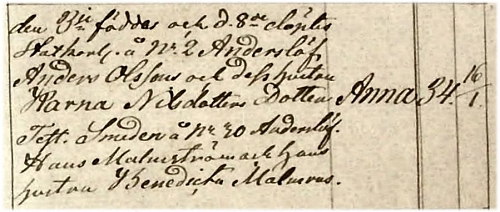 den 3je föddes och d. 8de döptes
Statharh. å Nr. 2 Anderslöf
Anders Olssons och dess hustru
Karna Nilsdotters Dotter Anna 34. 16/1.
Test. Smeden å Nr 30 Anderslöf.
Hans Malmström och hans
hustru Benedicta Malmros.